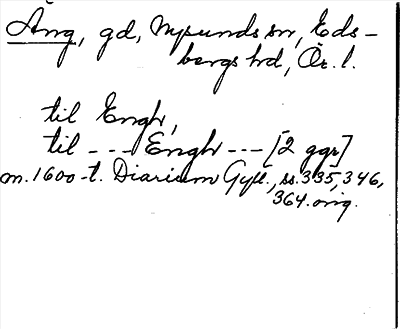 Äng, gd, Nysunds sn, Eds-
bergs hd, Ör. l.
til Engh,
til --- Engh --- [2 ggr]
m. 1600-t. Diarium Gyll., ss. 335, 346,
364. orig.